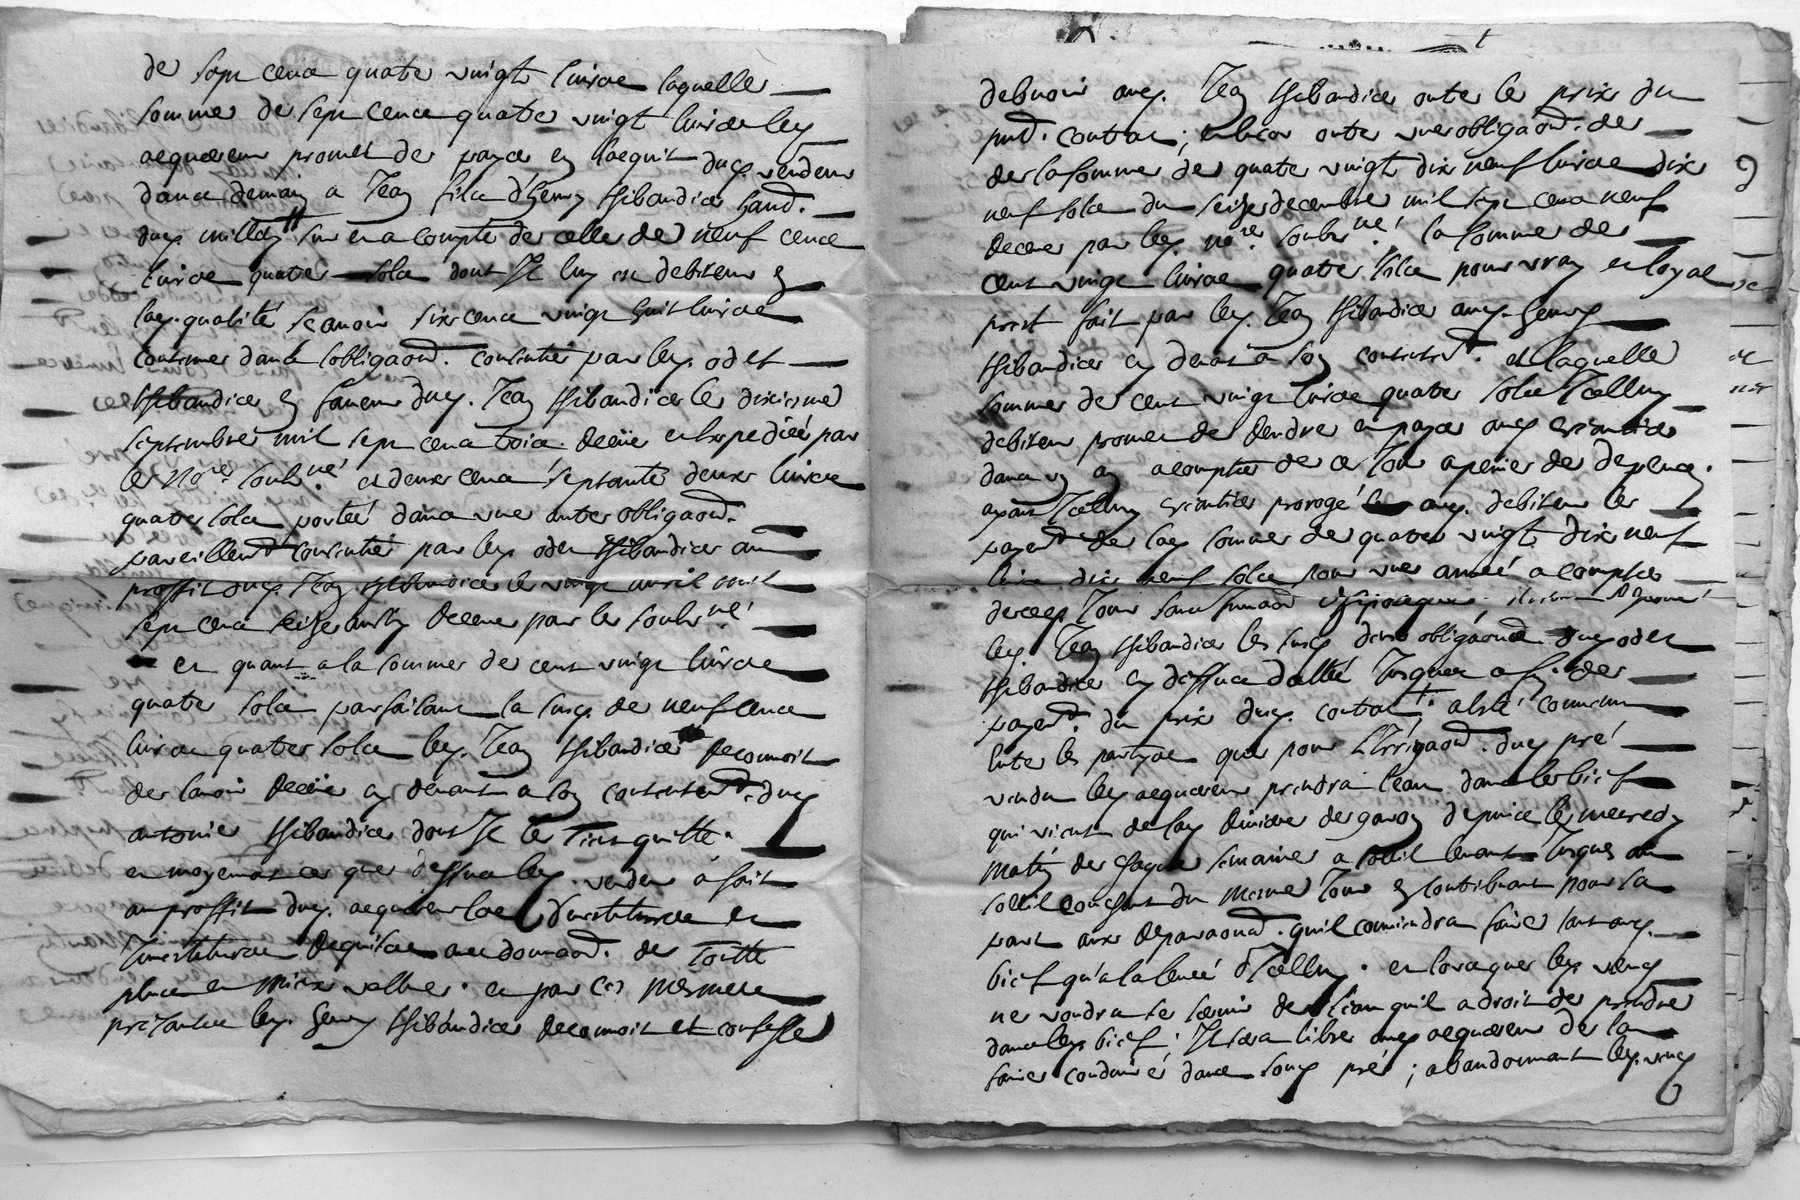 de sept cens quatre vingt livres laquelle
somme de sept cens quatre vingt livres ley
acquereur promet de payer en l'acquit dud. vendeur
dans demain a Jean fils d'henry Thibandier hand.
dud. millaz sur et a compte de celle de neuf cens
livres quatre sols dont Il luy est debiteur en
lad. qualité scavoir six cens vingt huit livres
contenues dans l'obligaõn. consentie par led. odet
Thibandier en faveur dud. Jean Thibandier le dixieme
septembre mil sept cens trois receue et expediée par
le No.re soubs.né et deux cens septante deux livres
quatre sols portée dans une autre obligaõn.
pareillem.t consentie par led. odet Thibandier au
proffit dud. Jean Thibandier le vingt avril mil
sept cens seize aussy receue par le soubs.né
et quant a la somme de cent vingt livres
quatre sols parfaisant la susd. de neuf cens
livres quatre sols led. Jean Thibandier reconnoit
de l'avoir receue cy devant a son contentem.t dud.
antoine Thibandier dont Il le tient quitte.
et moyenant ce que dessus led. vendeur a fait
au proffit dud. acquereur les devestitures et
Investitures requises avec donnaõn. de toutte
place et mieux vallue. et par ces mesmes
presentes led. henry Thibandier reconnoit et confesse
debvoir aud. Jean Thibandier outre le prix du
pnt. contrat; encor outre une obligaõn. de
de la somme de quatre vingt dix neuf livres dix
neuf sols du seize decembre mil sept cens neuf
receue par led. no.re soubs.né la somme de
cent vingt livres quatre sols pour vray et loyal
prest fait par led. Jean Thibandier aud. henry
Thibandier cy devant a son contentem.t et laquelle
somme de cent vingt livres quatre sols Icelluy
debiteur promet de rendre et payer aud. creancier
dans un an a compter de ce Jour a peine de depens.
ayant Icelluy creancier prorogé aud. debiteur le
payem.t de lad. somme de quatre vingt dix neuf
livres dix neuf sols pour une année a compter
de ce Jour sans Innaõn
led. Jean Thibandier les susd. deux obligaõns dud. odet
Thibandier cy dessus datté Jusques a fin de
payem.t du prix dud. contrat. a esté convenu
entre les partyes que pour L'Irrigaõn. dud. pré
vendu led. acquereur prendra l'eau dans le bief
qui vient de lad. riviere de gavoz depuis le mecredy
matin de chaque semaine a soleil levant Jusques au
soleil couchant du mesme Jour en contribuant pour sa
part aux reparaõns. qu'il conviendra faire tant aud.
bief qu'a la levée d'Icelluy. et lorsque led. vend.
ne voudra se servir de l'eau quil a droit de prendre
dans led. bief; Il sera libre aud. acquereur de la
faire conduire dans soud. pré; abandonnant led. vend.